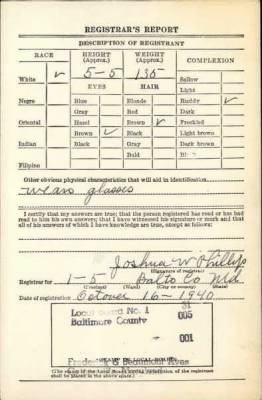 REGISTRAR'S REPORT
DESCRIPTION OF REGISTRANT
RACE HEIGHT (Approx.) WEIGHT (Approx.) COMPLEXION
White ✓ 5-5 135 Sallow
EYES HAIR Light
Negro Blue Blonde Ruddy ✓
Gray Red Dark
Oriental Hazel Brown ✓ Freckled
Brown ✓ Black Light brown
Indian Black Gray Dark brown
Bald Bl
Filipino
Other obvious physical characteristics that will aid in identification
wears glasses
I certify that my answers are true; that the person registered has read or has had
read to him his own answers; that I have witnessed his signature or mark and that
all of his answers of which I have knowledge are true, except as follows:
Joshua W Phillips
(Signature of registrar)
Registrar for 1-5 Balto Co Md.
(Precinct) (Ward) (City or county) (State)
Date of registration October 16-1940
Local Board No. 1 31
Baltimore County 005
001
Frederick & Beaumont Aves
(STAMP OF LOCAL BOARD)
(The stamp of the Local Board having jurisdiction of the registrant
shall be placed in the above space.)